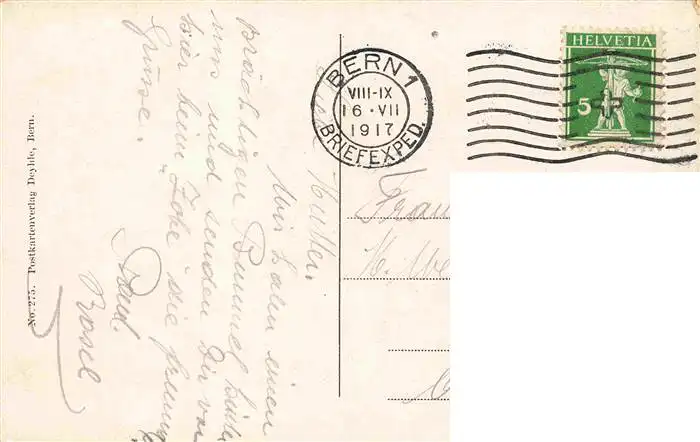 No. 275. Postkartenverlag Deyhle, Bern.
BERN 1
VIII-IX
16·VII
1917
BRIEFEXPED.
HELVETIA
5
Mutter.
Wir haben einen
prächtigen Bummel hinter
uns und senden Dir von
hier beim die
Grüsse.
Paul.
Rosel
Frau